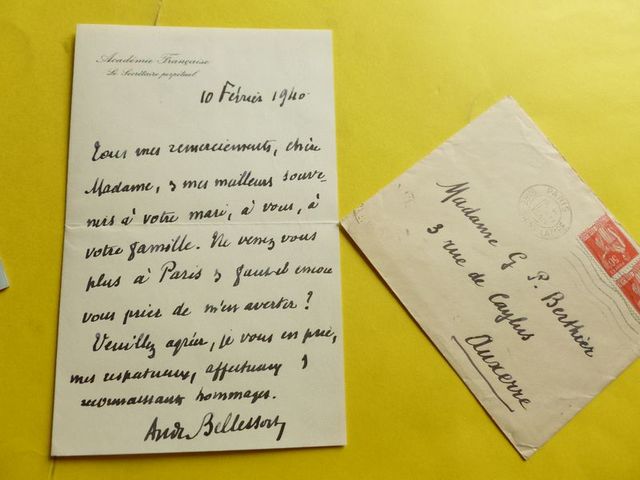 Académie Française
Le Secrétaire perpétuel
10 Février 1940
Tous mes remerciements, chère
Madame, & mes meilleurs souve-
nirs à votre mari, à vous, à
votre famille. Ne venez vous
plus à Paris & faut-il encore
vous prier de m'en avertir ?
Veuillez agréer, je vous en prie,
mes respectueux, affectueux &
reconnaissants hommages.
André Bellessort
Madame G P. Berthier
3 rue de Caylus
Auxerre
PARIS